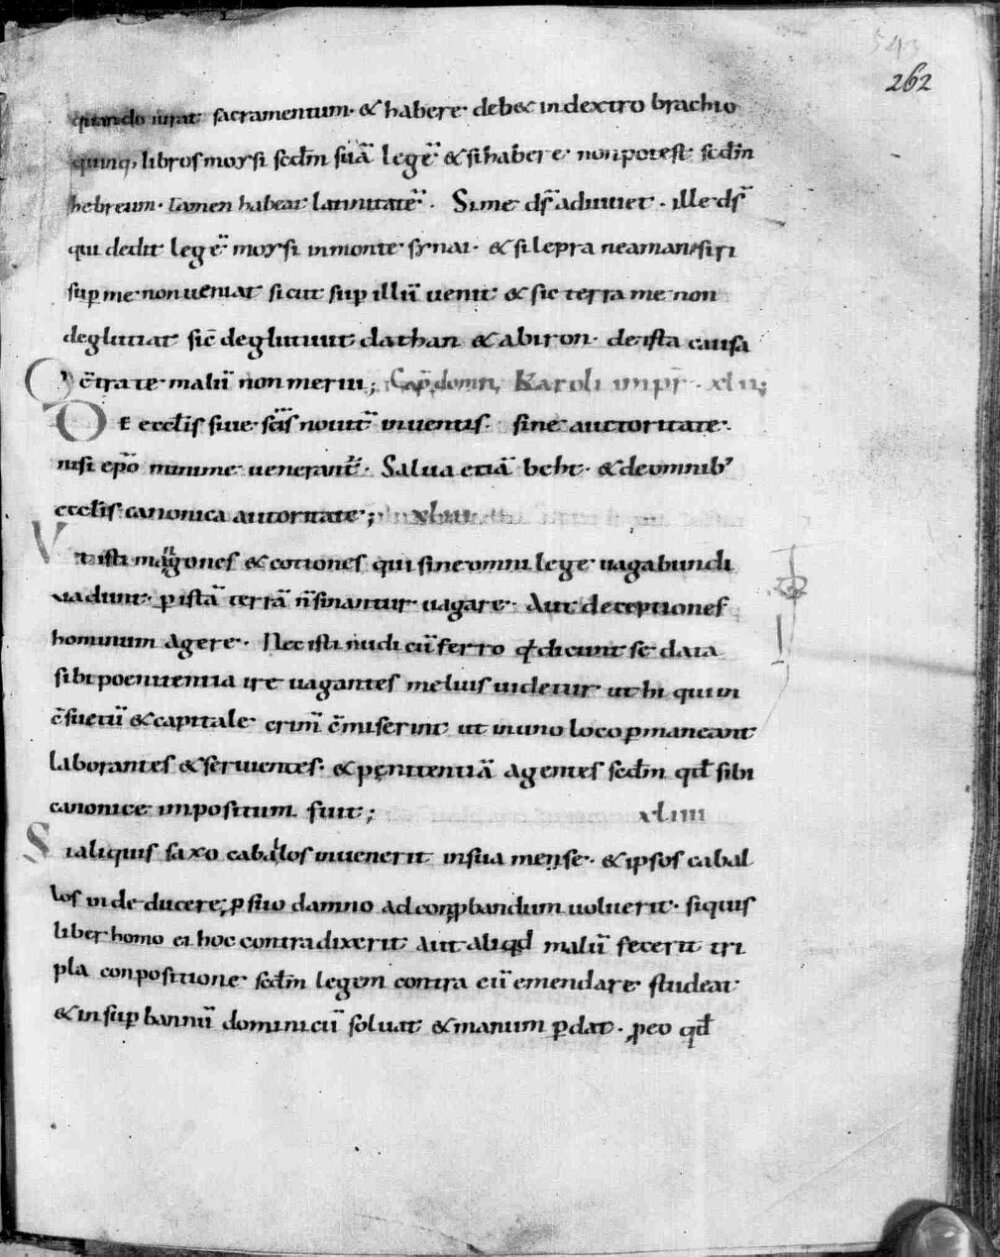 543
262
quando iurat sacramentum· & habere deb& in dextro brachio
quinq; libros moysi scdm suā legē & si habere non potest scdm
hebreum· tamen habeat latinitatē· Si me ds̄ adiuuet· ille ds̄
qui dedit legē moysi in monte synai· & si lepra neaman siri
sup me non ueniat sicut sup illū uenit & sic terra me non
deglutiat sic̄ deglutiuit dathan & abiron· de ista causa
c̄tra te malū non merui; Cap̄ domn̄ Karoli imp̄r· xlii;
DE eccl̄is siue sc̄is nouit̄ inuentis· sine auctoritate
nisi ep̄o minime uenerant̄· Salua etiā de h̄t· & de omnib;
eccl̄is canonica autoritate; xliii
Vt isti mangones & cotiones qui sine omni lege uagabundi
uadunt· p istā terrā n̄ sinantur uagare· Aut deceptiones
hominum agere· Nec isti nudi cū ferro qd dicunt se data
sibi poenitentia ire uagantes melius uidetur ut hi qui in
c̄suetū & capitale crim̄ c̄miserint ut in uno loco pmaneant
laborantes & seruientes· & pęnitentiā agentes scdm qd̄ sibi
canonice impositum sit; xliiii
Si aliquis saxo caballos inuenerit in sua messe· & ipsos cabal
los inde ducere; p suo damno ad conpbandum uoluerit· siquis
liber homo ei hoc contradixerit aut aliqd malū fecerit tri
pla conpositione scdm legem contra eū emendare studeat
& insup bannū dominicū soluat & manum pdat· p eo qd̄